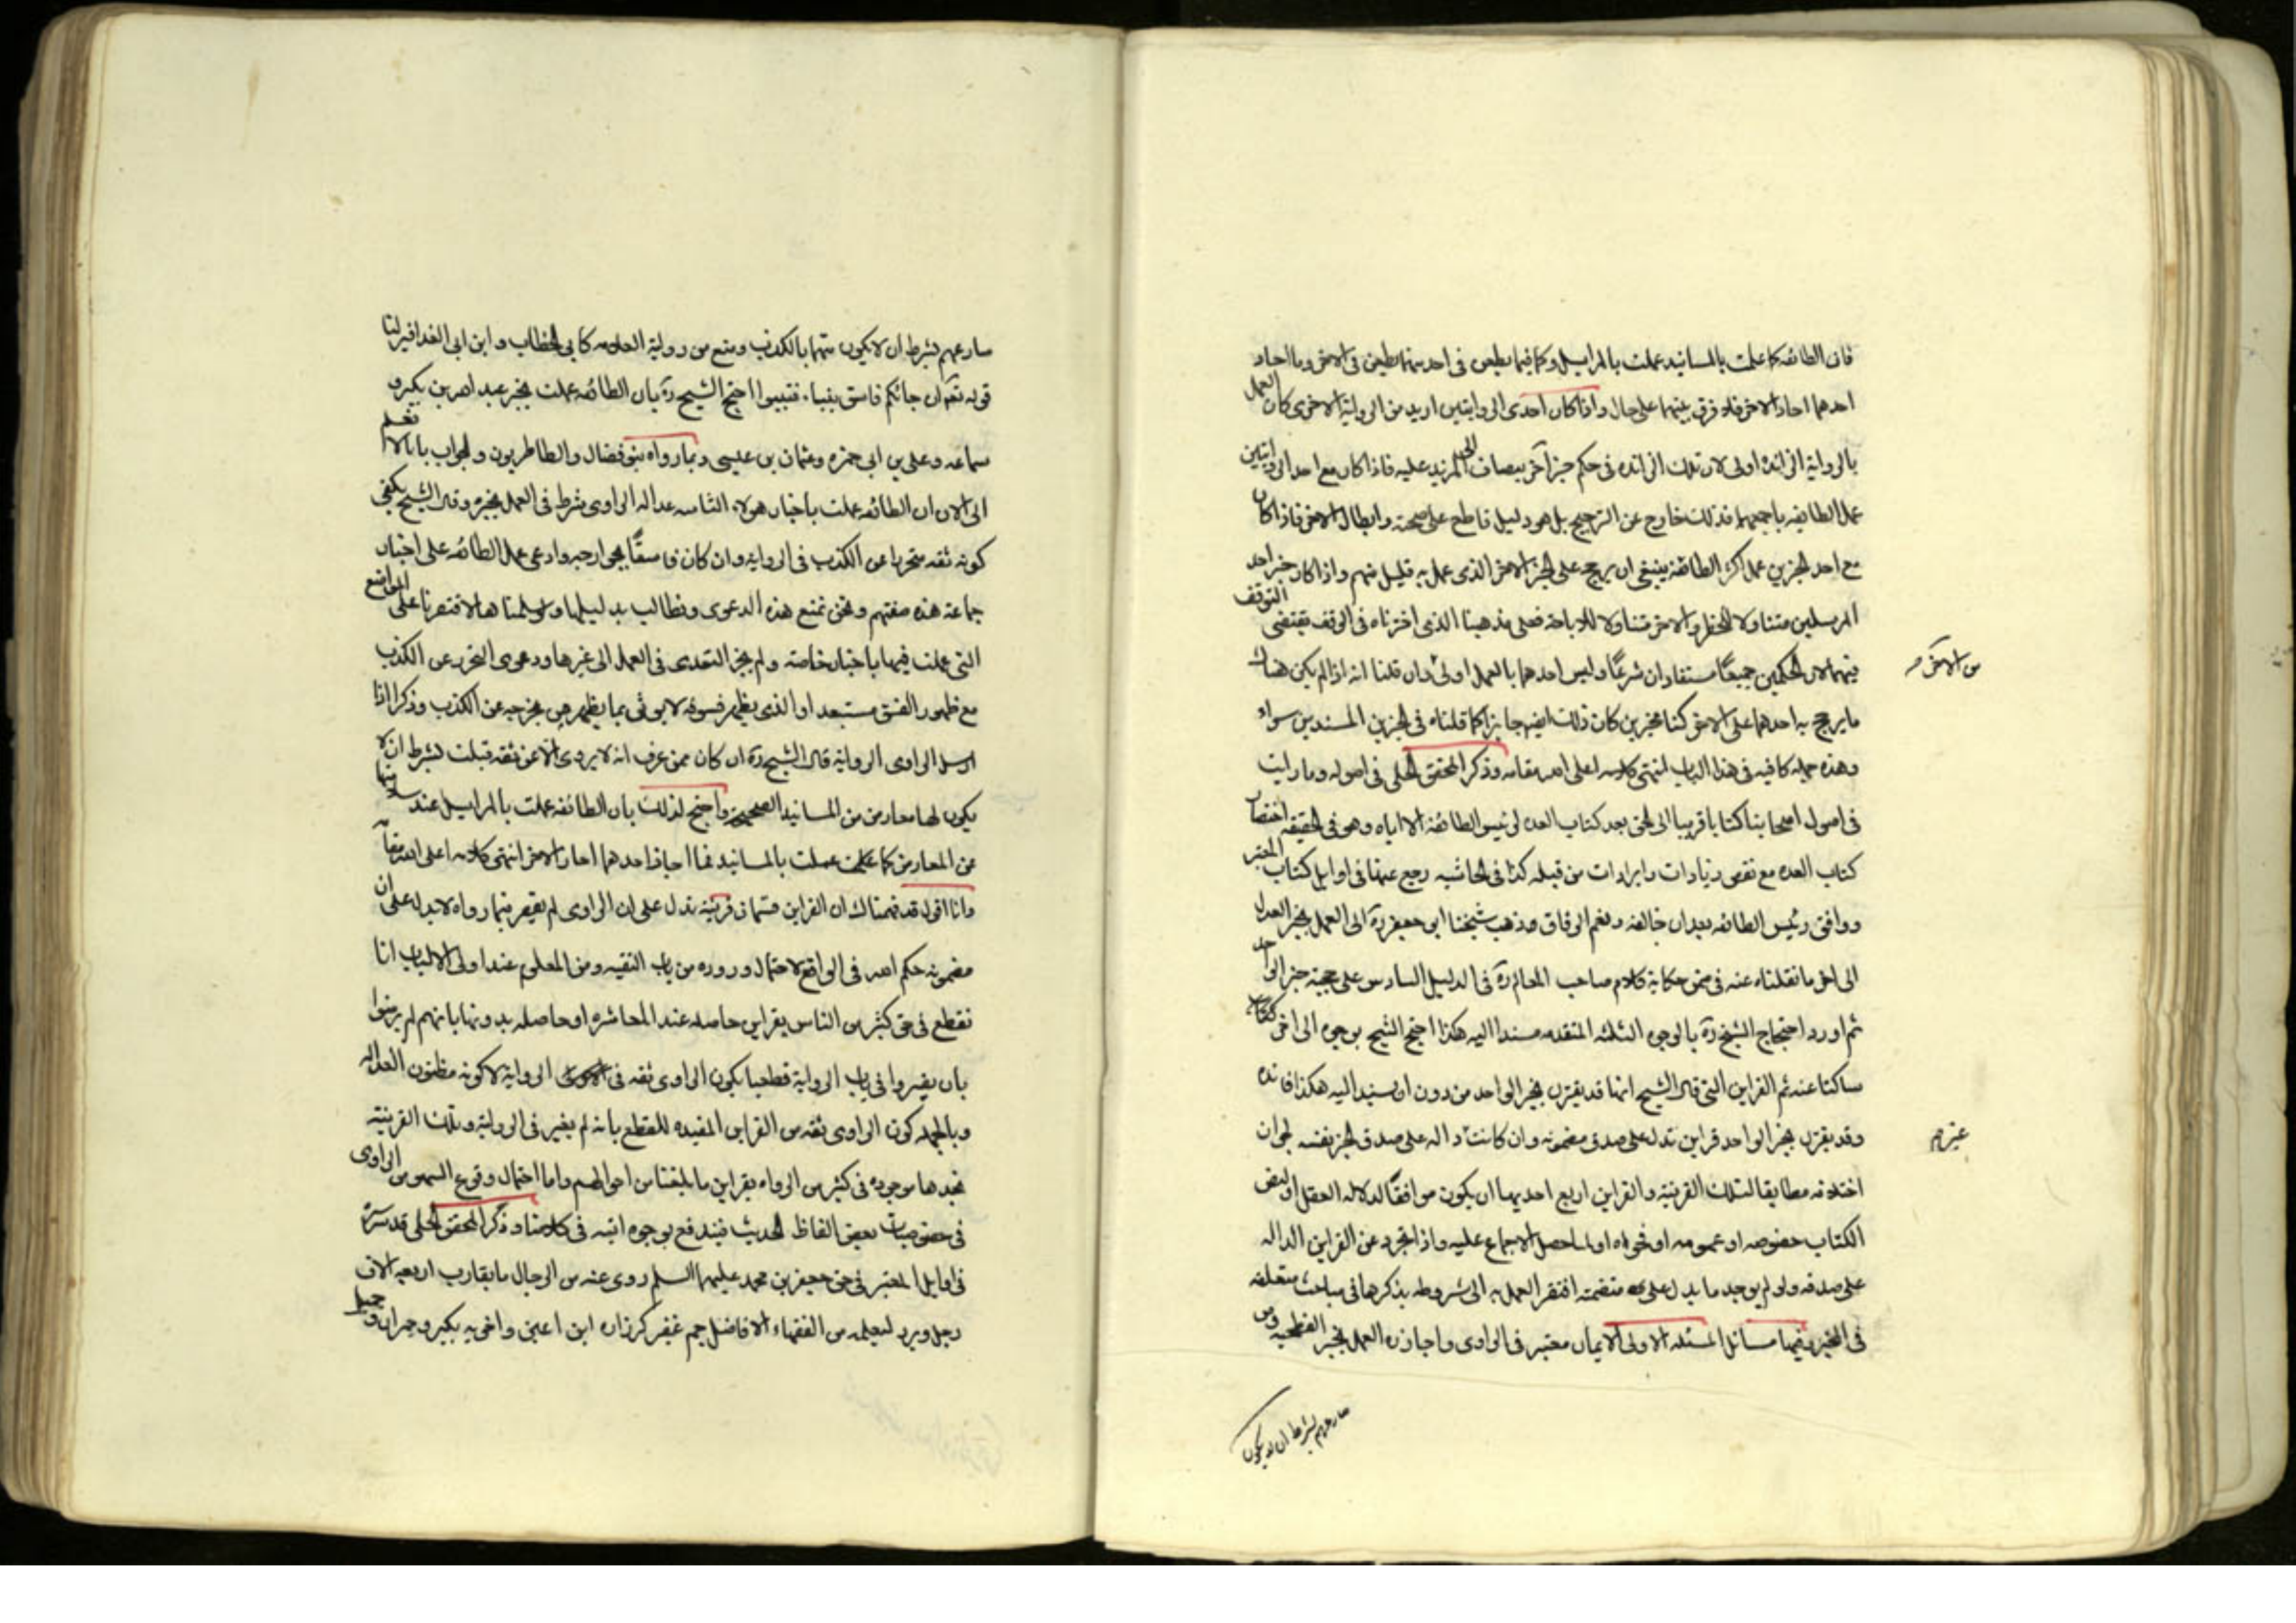 فان الطائفه كما عملت بالمسانيد عملت بالمراسيل وكما فيما يطعن فى احد منهما يطعن فى الاخر وما اجاز
احدهما اجاز الاخر فلا فرق بينهما على حال واذا كان احدى الروايتين ازيد من الرواية الاخرى كان العمل
بالرواية الزائده اولى لان تلك الزائده فى حكم خبر آخر ينضاف الى المزيد عليه فاذا كان مع احد الروايتين
عمل الطايفه باجمعها فذلك خارج عن الترجيح بل هو دليل قاطع على صحته وابطال الاخر فاذا كان
مع احد الخبرين عمل اكثر الطائفة ينبغى ان يرجح على الخبر الاخر الذى عمل به قليل منهم واذا كان خبر احد
المرسلين متناولا للحظر والاخر متناولا للاباحة فعلى مذهبنا الذى اخترناه فى الوقف يقتضى التوقف
فيهما لان الحكمين جميعًا مستفادان شرعًا وليس احدهما بالعمل اولى وان قلنا انه اذا لم يكن هناك
من الاخر
ما يرجح به احدهما على الاخر كنا مخيرين كان ذلك ايضا جايزا كما قلناه فى الخبرين المسندين سواء
وهذه جمله كافيه فى هذا الباب انتهى كلامه اعلى الله مقامه وذكر المحقق الحلى فى اصوله وما رايت
فى اصول اصحابنا كتابا قريبا الى الحق بعد كتاب العده لرئيس الطائفة الا اياه وهو فى الحقيقه اختصار
كتاب العده مع نقص زيادات وايرادات من قبله كذا فى الحاشيه رجع عنها فى اوايل كتاب المعتبر
ووافق رئيس الطائفه بعد ان خالفه ونعم الوفاق وذهب شيخنا ابو جعفر ره الى العمل بخبر العدل
الى اخر ما نقلناه عنه فى ضمن حكاية كلام صاحب المعالم ره فى الدليل السادس على حجية خبر الواحد
ثم اورد احتجاج الشيخ ره بالوجوه الثلثه المتقدمه مسندا اليه هكذا احتج الشيخ بوجوه الى اخر
ساكتا عنه ثم القراين التى قال الشيخ انها قد يقترن بخبر الواحد من دون ان يسند اليه هكذا فائده
وقد يقترن بخبر الواحد قراين تدل على صدق مضمونه وان كانت غير داله على صدق الخبر نفسه لجواز
اختلاقه مطابقا لتلك القرينة والقراين اربع احديها ان يكون موافقًا لدلاله العقل او لنص
الكتاب خصوصه او عمومه او فحواه او لما حصل الاجماع عليه واذا تجرد عن القراين الداله
على صدقه ولو لم يوجد ما يدل على متضمنه افتقر العمل به الى شروط يذكرها فى مباحث متعلقه
فى المخبر وفيها مسائل المسئله الاولى الايمان معتبر فى الراوى واجاز ره العمل بخبر الفطحيه ومن
ضارعهم بشرط ان لا يكون
ضارعهم بشرط ان لا يكون متهما بالكذب ومنع من رواية الغلاه كابى الخطاب وابن ابى العذاقر لنا
قوله تعالى ان جائكم فاسق بنبا فتبينوا احتج الشيخ ره بان الطائفه عملت بخبر عبد الله بن بكير و
سماعه وعلى بن ابى حمزه وعثمان بن عيسى وبما رواه بنو فضال والطاطريون والجواب بانا لا نعلم
الى الان ان الطائفه عملت باخبار هولاء الثامنه عداله الراوى شرط فى العمل بخبره وقال الشيخ يكفى
كونه ثقه متحرزا عن الكذب فى الرواية وان كان فاسقًا بجوارحه وادعى عمل الطائفه على اخبار
جماعة هذه صفتهم ونحن نمنع هذه الدعوى ونطالب بدليلها ولو سلمناها لاقتصرنا على المواضع
التى عملت فيها باخبار خاصة ولم يجز التعدى فى العمل الى غيرها ودعوى التحرز عن الكذب
مع ظهور الفسق مستبعد او الذى يظهر فسوقه لا يوثق بما يظهر من تحرجه عن الكذب وذكر اذا
ارسل الراوى الرواية قال الشيخ ره ان كان ممن عرف انه لا يروى الا عن ثقه قبلت بشرط ان لا
يكون لها معارض من المسانيد الصحيحة واحتج لذلك بان الطائفه عملت بالمراسيل عند سلامتها
عن المعارض كما عملت بالمسانيد فما اجاز احدهما اجاز الاخر انتهى كلامه اعلى الله مقامه
وانا اقول قد فهمناك ان القراين قسمان قرينه تدل على ان الراوى لم يفتر فيما رواه لا يدل على ان
مضمونه حكم الله فى الواقع لاحتمال وروده من باب التقيه ومن المعلوم عند اولى الالباب انا
نقطع فى حق كثير من الناس بقراين حاصله عند المعاشره او حاصله بدونها بانهم لم يرضوا
بان يفتروا فى باب الرواية قطعيا بكون الراوى ثقه فى الرواية لا كونه مظنون العداله
وبالجمله كون الراوى ثقه من القراين المفيده للقطع بانه لم يفتر فى الرواية وتلك القرينة
نجدها موجوده فى كثير من الرواه بقراين ما بلغنا من احوالهم واما احتمال وقوع السهو من الراوى
فى خصوصيات بعض الفاظ الحديث فيندفع بوجوه اتيه فى كلامنا وذكر المحقق الحلى قدس سره
فى اوايل المعتبر فى حق جعفر بن محمد عليهما السلم روى عنه من الرجال ما يقارب اربعه الاف
رجل وبرز لتعليمه من الفقهاء الافاضل جم غفير كزراره ابن اعين واخويه بكير وحمران وجميل